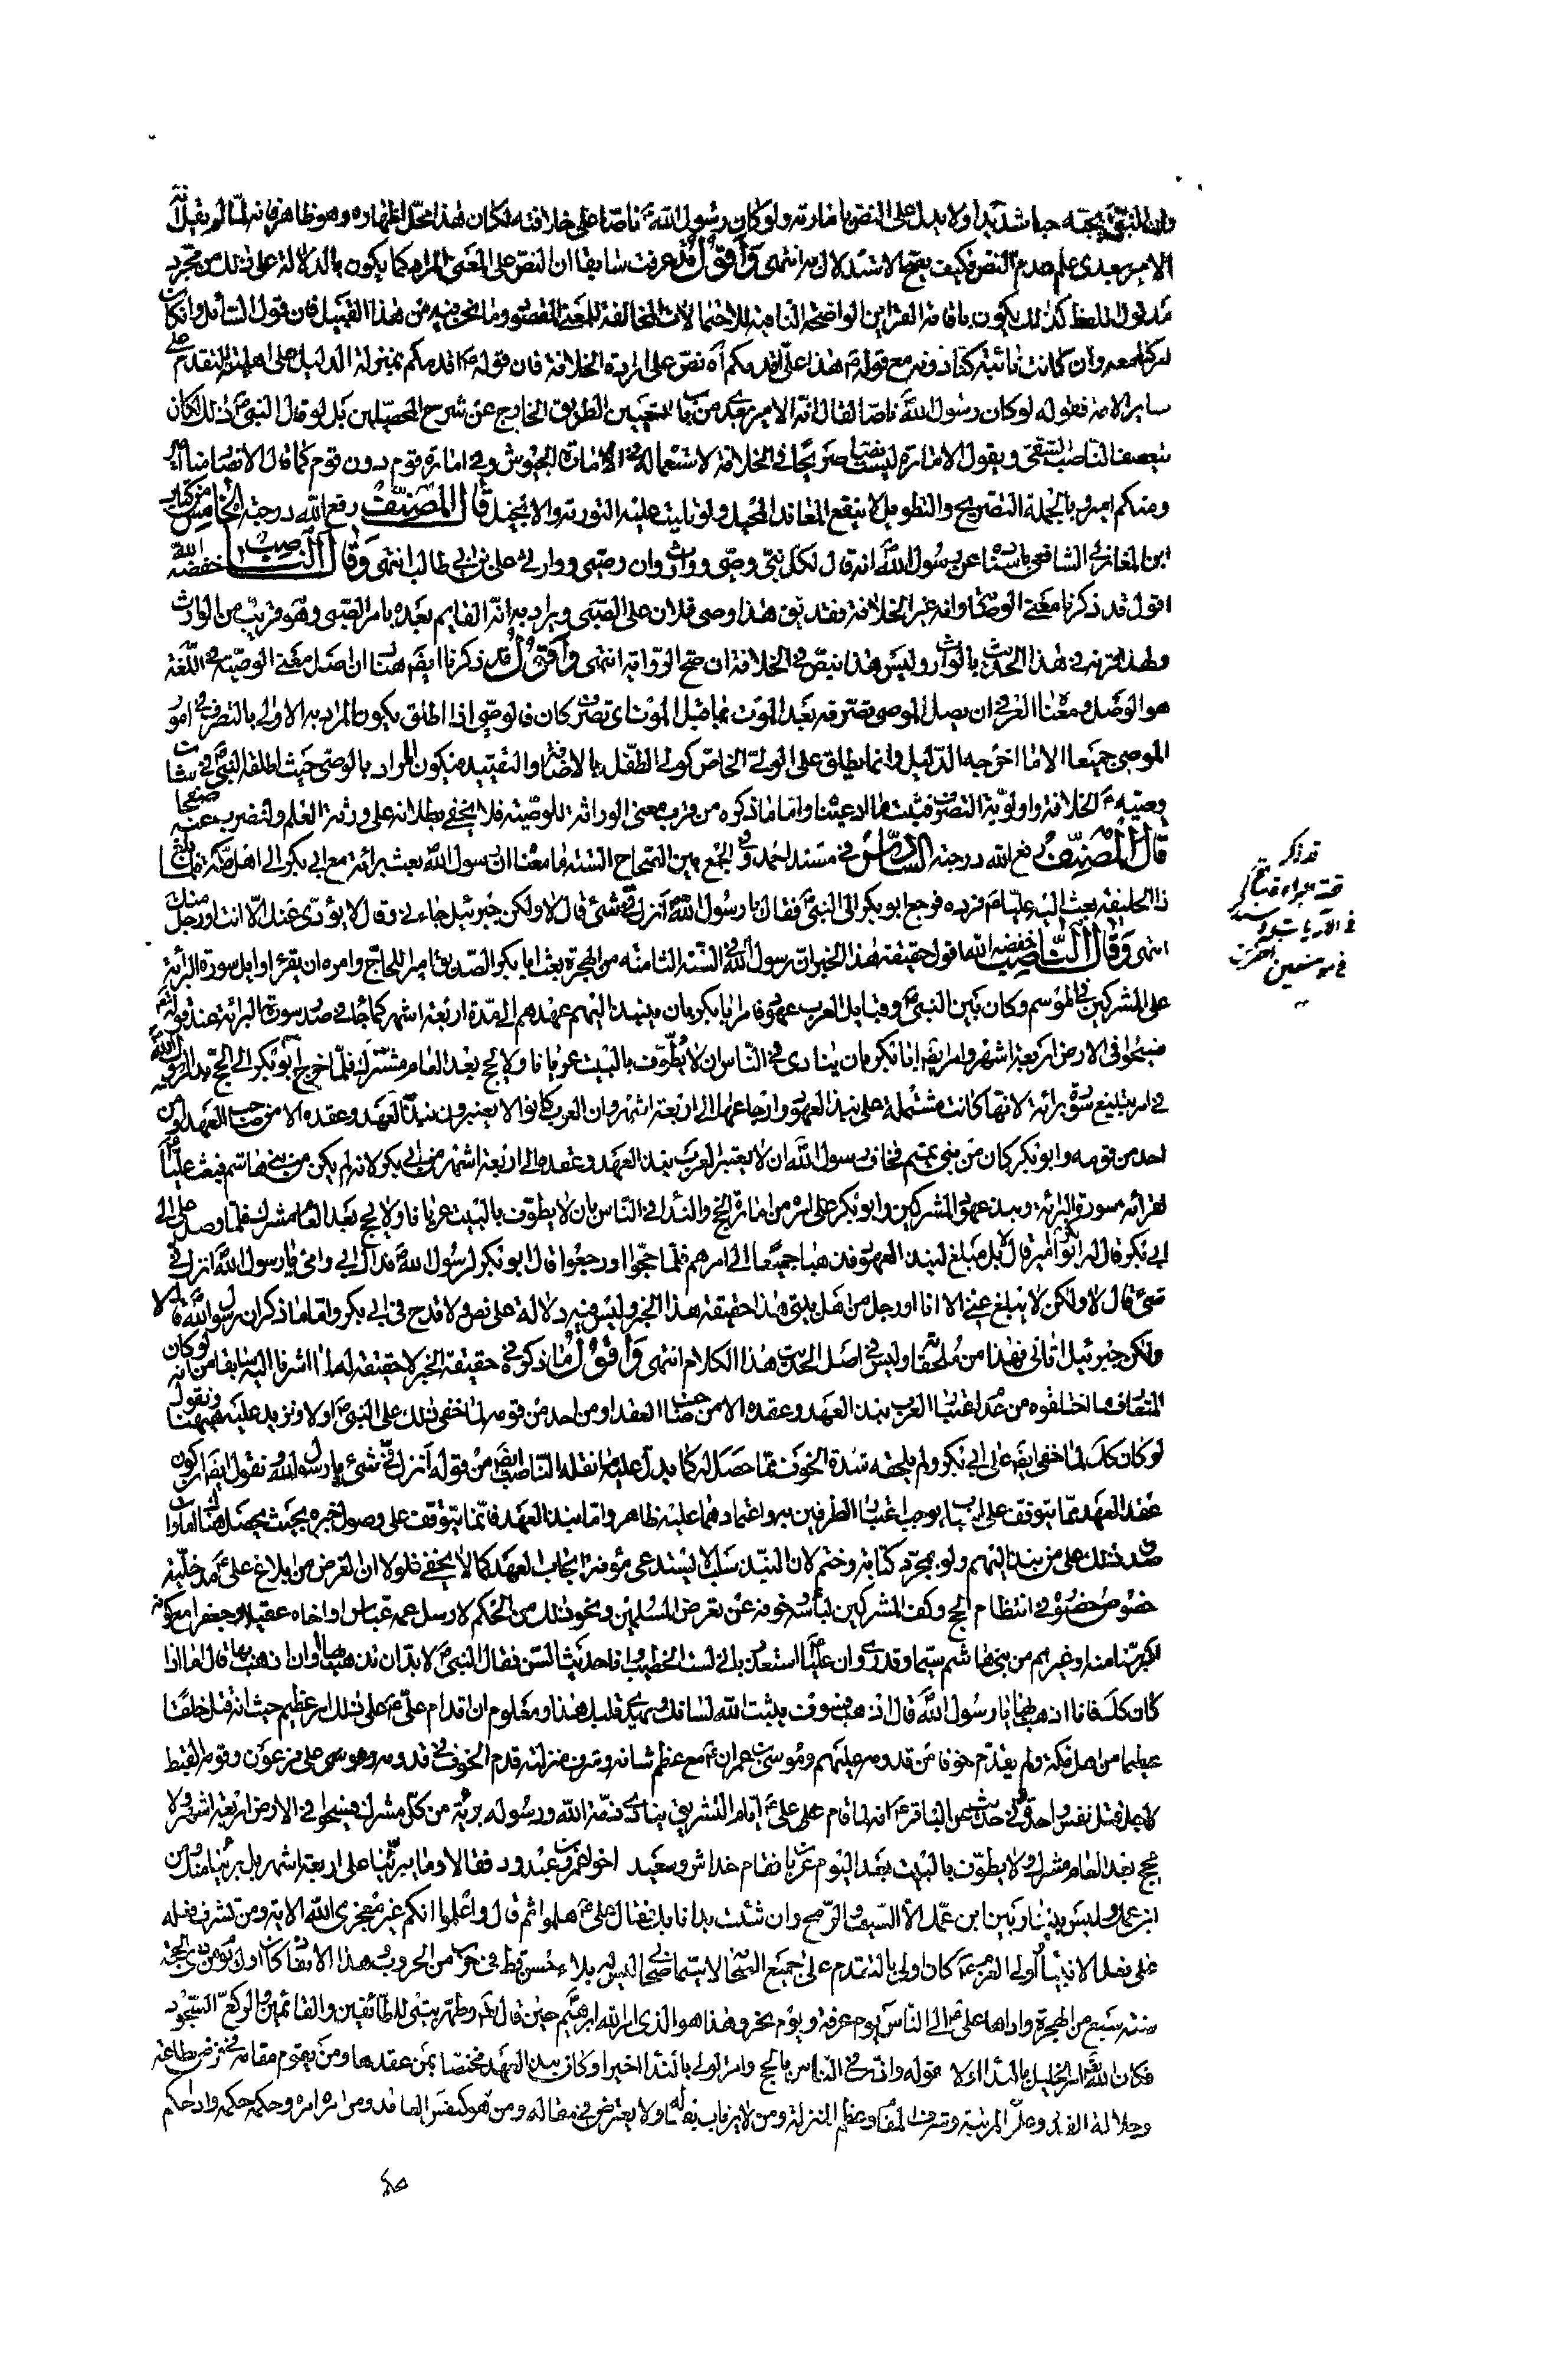 وان النبى ص يحبه حبا شديدا ولا يدل على النص بامارته ولو كان رسول الله ص ناصّا على خلافته لكان هذا محل اظهاره وهو ظاهر فانه لمّا لم يقل انّه
الامير بعدى علم عدم النص فكيف يصح الاستدلال به انتهى وَأَقُولُ قد عرفت سابقا ان النصّ على المعنى المراد كما يكون بالدلالة على ذلك من مجرد
مدلول اللفظ كذلك يكون باقامة القراين الواضحة النافية للاحتمالات المخالفة للمعنى المقصود وما نحن فيه من هذا القبيل فان قول السائل وان كان
سايرالامة فقوله لو كان رسول الله ناصّا لقال انّه الامير بعدى من باب تعيين الطريق الخارج عن شرح المحصّلين بل لو قال النبى ص ذلك لكان
يتعصف الناصب الشقى ويقول الامارة ليست نصا صريحا فى الخلافة لاستعماله فى امارة الجيوش وفى امارة قوم دون قوم كما قال الانصار منا امير
ومنكم امير وبالجملة التصريح والتطويل لا ينفع المعاند المحيل ولو تليت عليه التورية والانجيل قال المصَنّف رفع الله درجته الخامس من كتاب
ابن المغازلى الشافعى باسناده عن رسول الله ص انه قال لكل نبى وصى ووارث وان وصيى ووارثى على بن ابى طالب انتهى وَقَالَ النّاصِب خفضه الله
اقول قد ذكرنا معنى الوصى وانه غير الخلافة فقد يق هذا وصى فلان على الصّبى ويراد به انّه القايم بعده بامر الصّبى وهو قريب من الوارث
ولهذا قرنه فى هذا الحديث بالوارث وليس هذا بنص فى الخلافة ان صح الرواية انتهى وَأَقُولُ قد ذكرنا ايضا هنا ان اصل معنى الوصيّة فى اللّغة
هو الوصل ومعناه العرفى ان يصل الموصى تصرفه بعد الموت بما قبل الموت اى تصرف كان فالوصى اذا اطلق يكون المراد به الاولى بالتصرف فى امور
الموصى جميعا الا ما اخرجه الدّليل وانما يطلق على الولى الخاص كولى الطفل بالاضافة والتقييد فيكون المراد بالوصى حيث اطلقه النبى ص فى شان
وصيه ع الخلافة واولوية التصرف فثبت ما ادعيناه واما ما ذكره من قرب معنى الوراثة للوصيّة فلا يخفى بطلانه على ورثة العلم ولنضرب عنه صفحا
قَالَ المصَنِّف رفع الله درجته السّادِسُ فى مسند احمد وفى الجمع بين الصّحاح السّتة ما معناه ان رسول الله بعث براءة مع ابى بكر الى اهل مكة فلمّا بلغ
ذا الحليفة بعث اليه عليّا ع فرده فرجع ابو بكر الى النبى ص فقال يا رسول الله أنزل فىّ شئ قال لا ولكن جبرئيل جاءنى وقال لا يؤدّى عنك الّا انت او رجل منك
انتهى وَقَالَ النّاصِب خفضه الله اقول حقيقة هذا الخبر ان رسول الله فى السّنة الثامنة من الهجرة بعث ابا بكر الصّديق اميرا للحاج وامره ان يقرء اوايل سورة البرائة
على المشركين فى الموسم وكان بين النبى ص وقبايل العرب عهود فامر ابا بكر بان ينبذ اليهم عهدهم الى مدّة اربعة اشهر كما جاء فى صدر سورة البرائة عند قوله تعالى
فسيحوا فى الارض اربعة اشهر وامر ايضا ابا بكر بان ينادى فى النّاس ان لا يطوف بالبيت عريانا ولا يحج بعد العام مشرك فلمّا خرج ابو بكر الى الحج بدا لرسول الله
فى امر تبليغ سورة برائة لانّها كانت مشتملة على نبذ العهود وارجاعها الى اربعة اشهر وان العرب كانوا لا يعتبرون نبذ العهد وعقده الا من صاحب العهد او من
احد من قومه وابو بكر كان من بنى تيم فخاف رسول الله ان لا يعتبر العرب نبذ العهد وعقده الى اربعة اشهر من ابى بكر لانه لم يكن من بنى هاشم فبعث عليّا
لقرائة سورة البرائة ونبذ عهود المشركين وابو بكر على امره من امارة الحج والندا فى النّاس بان لا يطوف بالبيت عريانا ولا يحج بعد العام مشرك فلمّا وصل على الى
ابى بكر قال له ابو بكر أمير قال لا بل مبلغ لنبذ العهود فذهبا جميعا الى امرهم فلمّا حجّوا ورجعوا قال ابو بكر لرسول الله ص فداك ابى وامى يا رسول الله انزل فى
شئ قال لا ولكن لا يبلغ عنى الا انا او رجل من اهل بيتى هذا حقيقة هذا الخبر وليس فيه دلالة على نص ولا قدح فى ابى بكر واما ما ذكر ان رسول الله قال لا
ولكن جبرئيل اتانى فهذا من ملحقاته وليس فى اصل الحديث هذا الكلام انتهى وَأَقُولُ ما ذكره فى حقيقة الخبر لا حقيقة له لما اشرنا اليه سابقا من انه لو كان
المتعارف ما اختلقوه من عدم اعتبار العرب نبذ العهد وعقده الا من صاحب العقد او من احد من قومه لما خفى ذلك على النبى ص اولا ونزيد عليه ههنا ونقول
لو كان كك لما خفى ايضا على ابى بكر ولم يلحقه شدة الخوف مما حصل له كما يدل عليه ما نقله النّاصب ايضا من قوله أنزل فىّ شئ يا رسول الله ونقول ايضا ان كون
عقد العهد ممّا يتوقف على اسباب يوجب رغبة الطرفين به واعتمادهما عليه ظاهر واما نبذ العهد فانّما يتوقف على وصول خبره بحيث يحصل
صدق ذلك على من نبذ اليهم ولو بمجرد كتابة وختم لان النبذ سلب لا يستدعى مؤنة ايجاب العهد كما لا يخفى فلولا ان الغرض من ابلاغ على ع مدخلية
خصوص حضوره فى انتظام الحج وكف المشركين لباسه وخوفه عن تعرض المسلمين ونحو ذلك من الحكم لارسل عمه عباس او اخاه عقيلا وجعفرا مع كونه
اكبر سنا منه او غيرهم من بنى هاشم سيّما وقد روى ان عليّا ع استعذر بانى لست الخطيب وانا حديث السّن فقال النبى ص لا بد ان تذهب بها او ان اذهب بها قال اما اذا
كان كك فانا اذهب بها يا رسول الله قال اذهب فسوف يثبت الله لسانك ويهدى قلبك هذا ومعلوم ان اقدام على ع على ذلك امر عظيم حيث انه قتل خلقا
عظيما من اهل مكة ولم يقدّم خوفا من قدومه عليهم وموسى بن عمران ع مع عظم شانه وشرف منزلته قدم الخوف فى قدومه وهو نبى على فرعون وقومه القبط
لاجل قتل نفس واحدة وفى حديث عن الباقر ع انه لما قام على على ع ايام التشريق ينادى ذمّة الله ورسوله برئة من كل مشرك فسيحوا فى الارض اربعة اشهر ولا
يحج بعد العام مشرك ولا يطوف بالبيت بعد اليوم عريانا فقام خداش وسعيد اخوا عمرو بن عبدود فقالا وما يبرئنا على اربعة اشهر بل برئنا منك ومن
ابن عمك وليس بيننا وبين ابن عمك الا السيف والرّمح وان شئت بدانا بك فقال على ع هلموا ثم قال واعلموا انكم غير معجزى الله الاية ومن تشرف فعله
على فعل الانبياء اولى العزم ع كان اولى بالتقدم على جميع الصّحابة لا سيّما صحابى ليس له بلاء حسن قط فى حرب من الحروب هذا الاتفاق كان اول يوم من ذى الحجة
سنة سبع من الهجرة واداها على ع الى النّاس يوم عرفة ويوم نحر وهذا هو الذى امر الله ابراهيم حين قال له وطهر بيتى للطائفين والقائمين والركع السّجود
فكان الله تعالى امر الخليل بالنداء اولا بقوله واذن فى النّاس بالحج وامر الولى بالنداء اخيرا وكان نبذ العهد مختصا بمن عقدها ومن يقوم مقامه فى فرض طاعته
وجلالة القدر وعلو المرتبة وشرف المقام وعظم المنزلة ومن لا يرتاب بفعاله ولا يعترض فى مقاله ومن هو كنفس العاقد ومن امره امره وحكمه حكمه واذا حكم
قد ذكر
قصة البراءة
فى الآيات